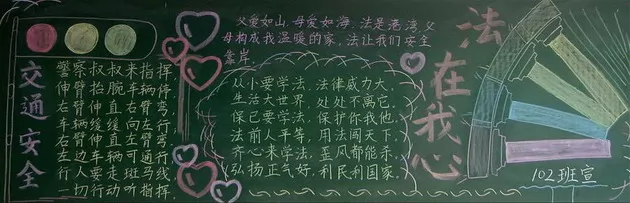 交通安全
警察叔叔来指挥,
伸臂抬腕车辆停
右臂伸直右臂弯,
车辆缓缓向左行
左臂伸直左臂弯,
右边车辆可通行
行人要走斑马线
一切行动听指挥.
父爱如山,母爱如海.法是港湾父
母构成我温暖的家,法让我们安全
靠岸.
从小要学法,法律威力大.
生活大世界,处处不离它.
保己要学法,保护你我他.
法前人平等,用法闯天下.
齐心来学法,歪风都能杀.
弘扬正气好,利民利国家.
法在我心
102班宣